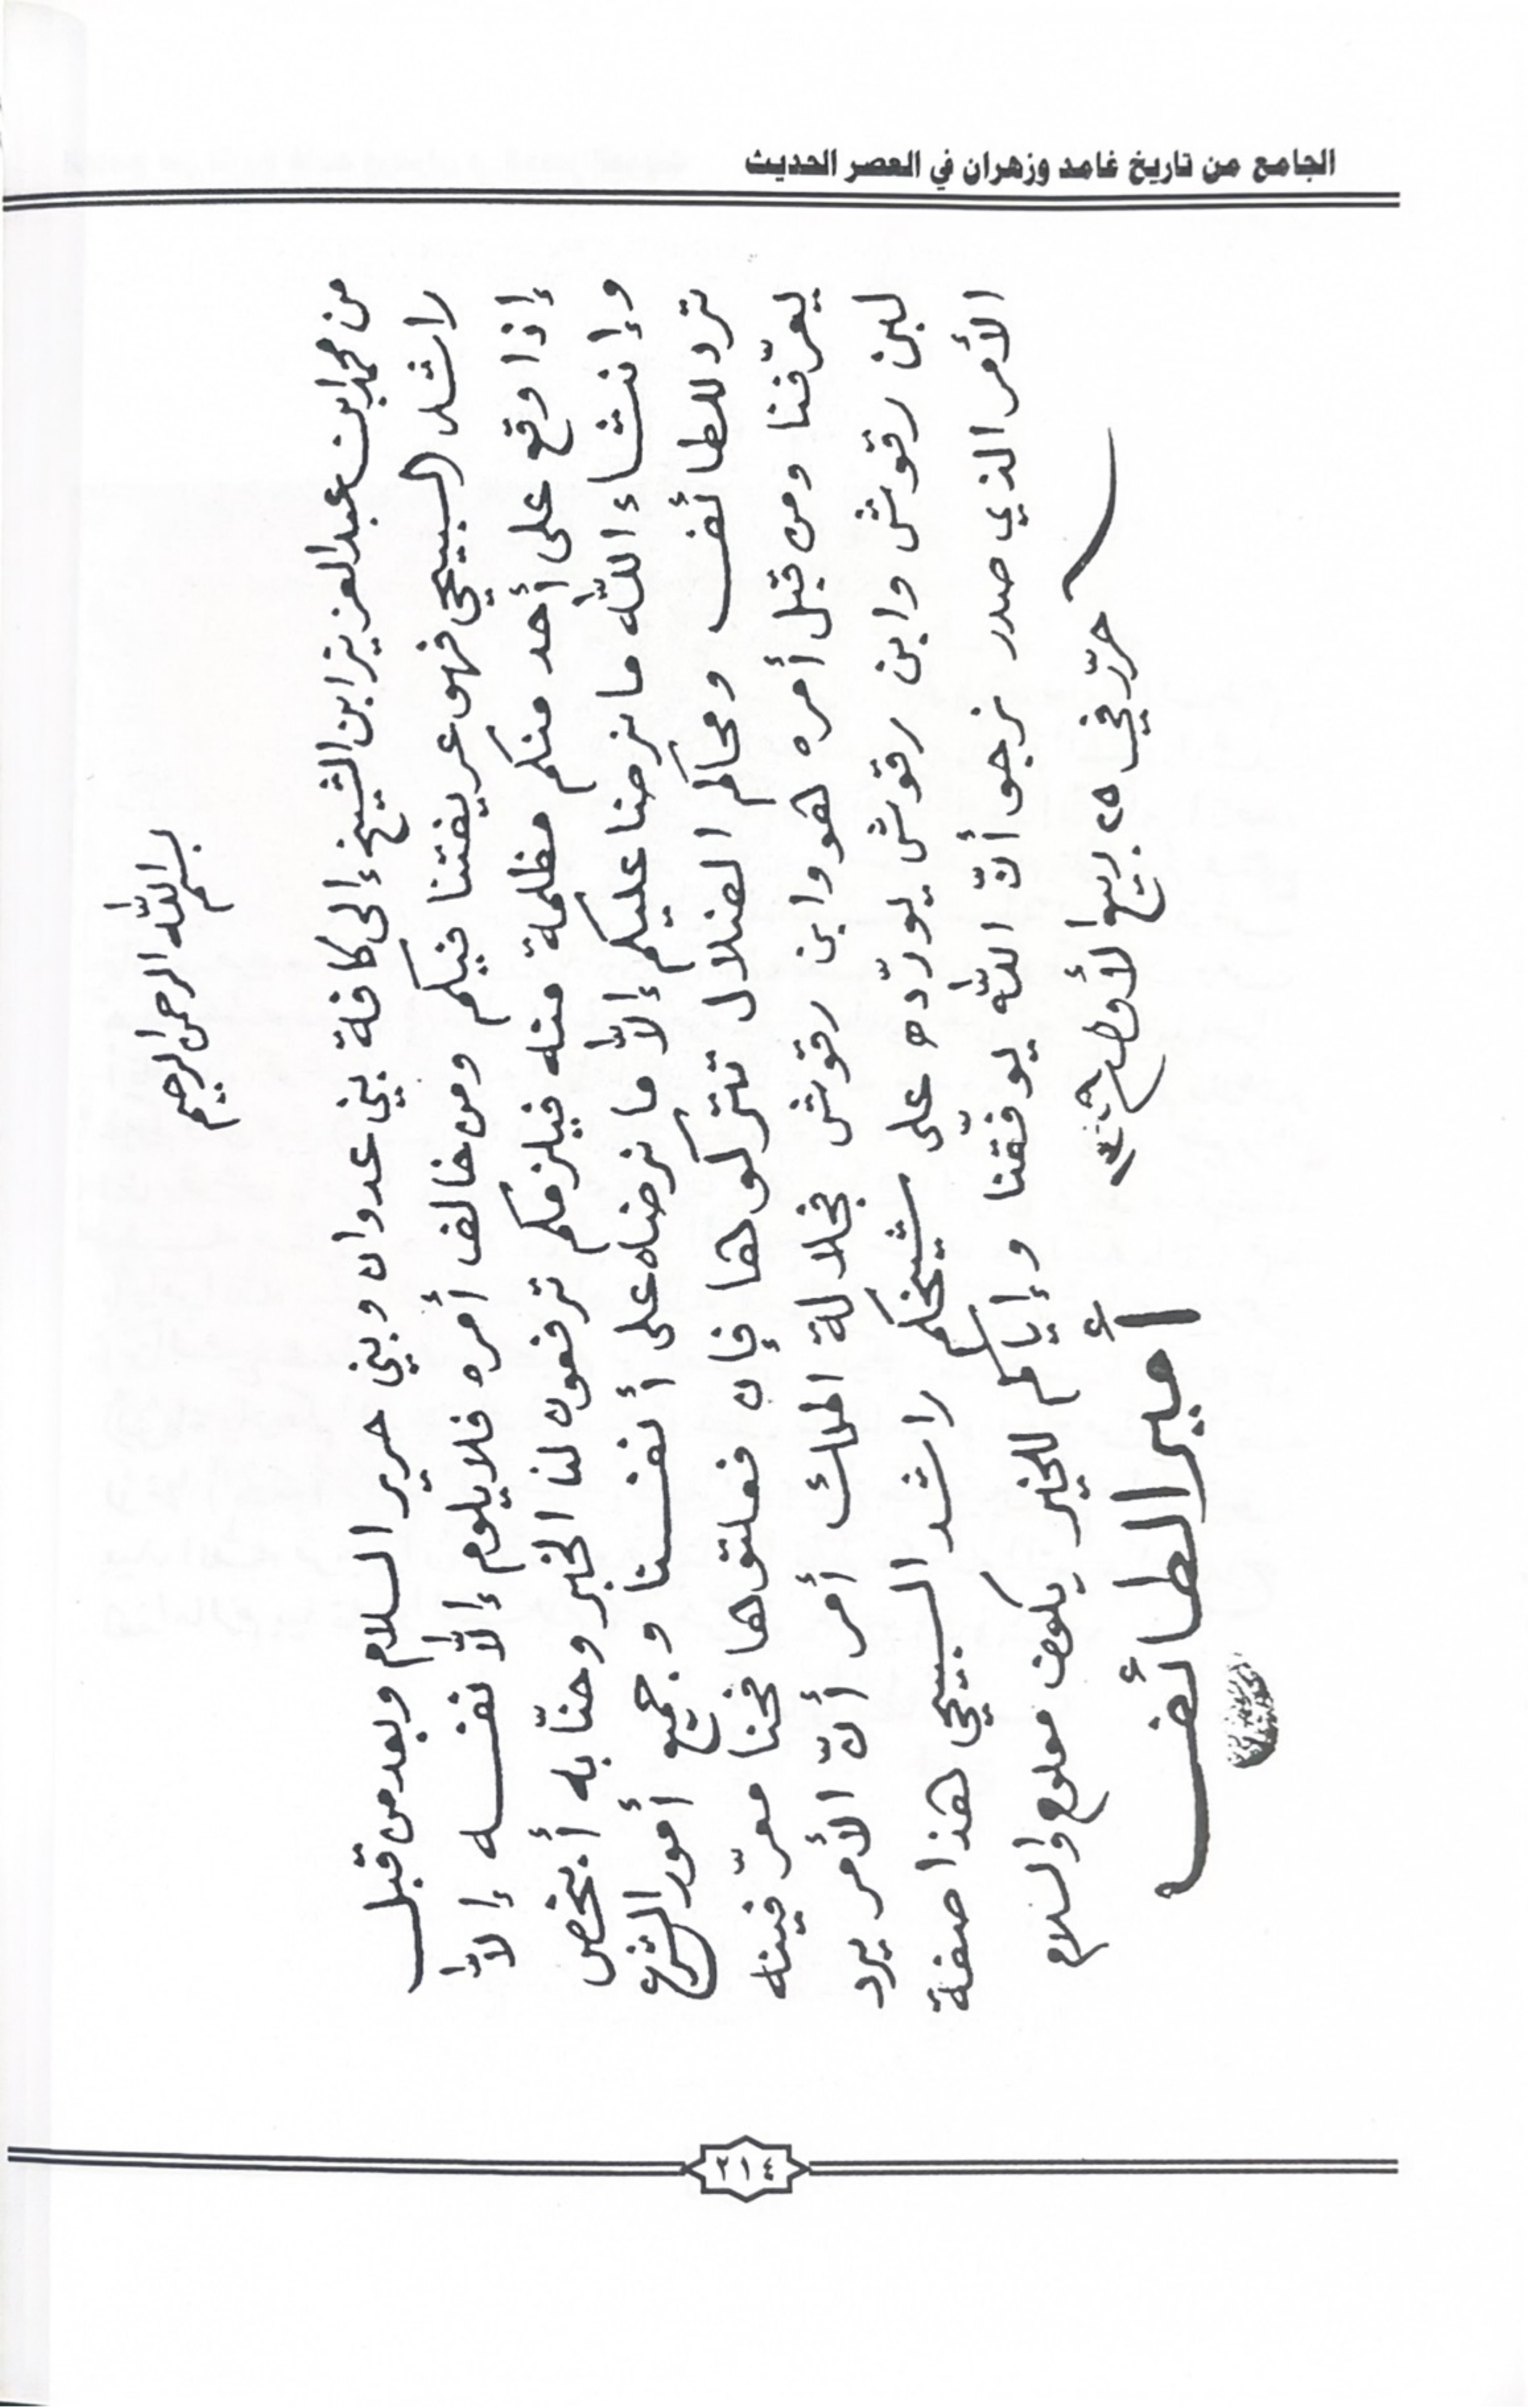 الجامع من تاريخ غامد وزهران في العصر الحديث
بسم الله الرحمن الرحيم
من محمد ابن عبد العزيز ابن الشيخ إلى كافة بني عدوان وبني حرير السلام وبعد من قبل
راشد السبيحي فهو عريفتنا فيكم ومن خالف أمره فلا يلوم إلاّ نفسه إلاّ
إذا وقع على أحد منكم مظلمة منه فيلزمكم ترفعون لنا الخبر وحنّا به أبخص
وإنشاء الله ما نرضا عليكم إلاّ ما نرضاه على أنفسنا وجميع أمور الشرع
ترد للطائف ومحاكم الضلال تتركوها فإن فعلتوها فحنا معرّفينه
يعرّفنا ومن قبل أمره هو وابن رقوش فجلالة الملك أمر أنّ الأمر يرد
لبن رقوش وابن رقوش يورّده على شيخكم راشد السبيحي هذا صفة
الأمر الذي صدر نرجو أنّ الله يوفّقنا وإياكم للخير يكون معلوم والسلام
حرّر في ٢٥ ربيع الأول
أمير الطائف
٢١٤